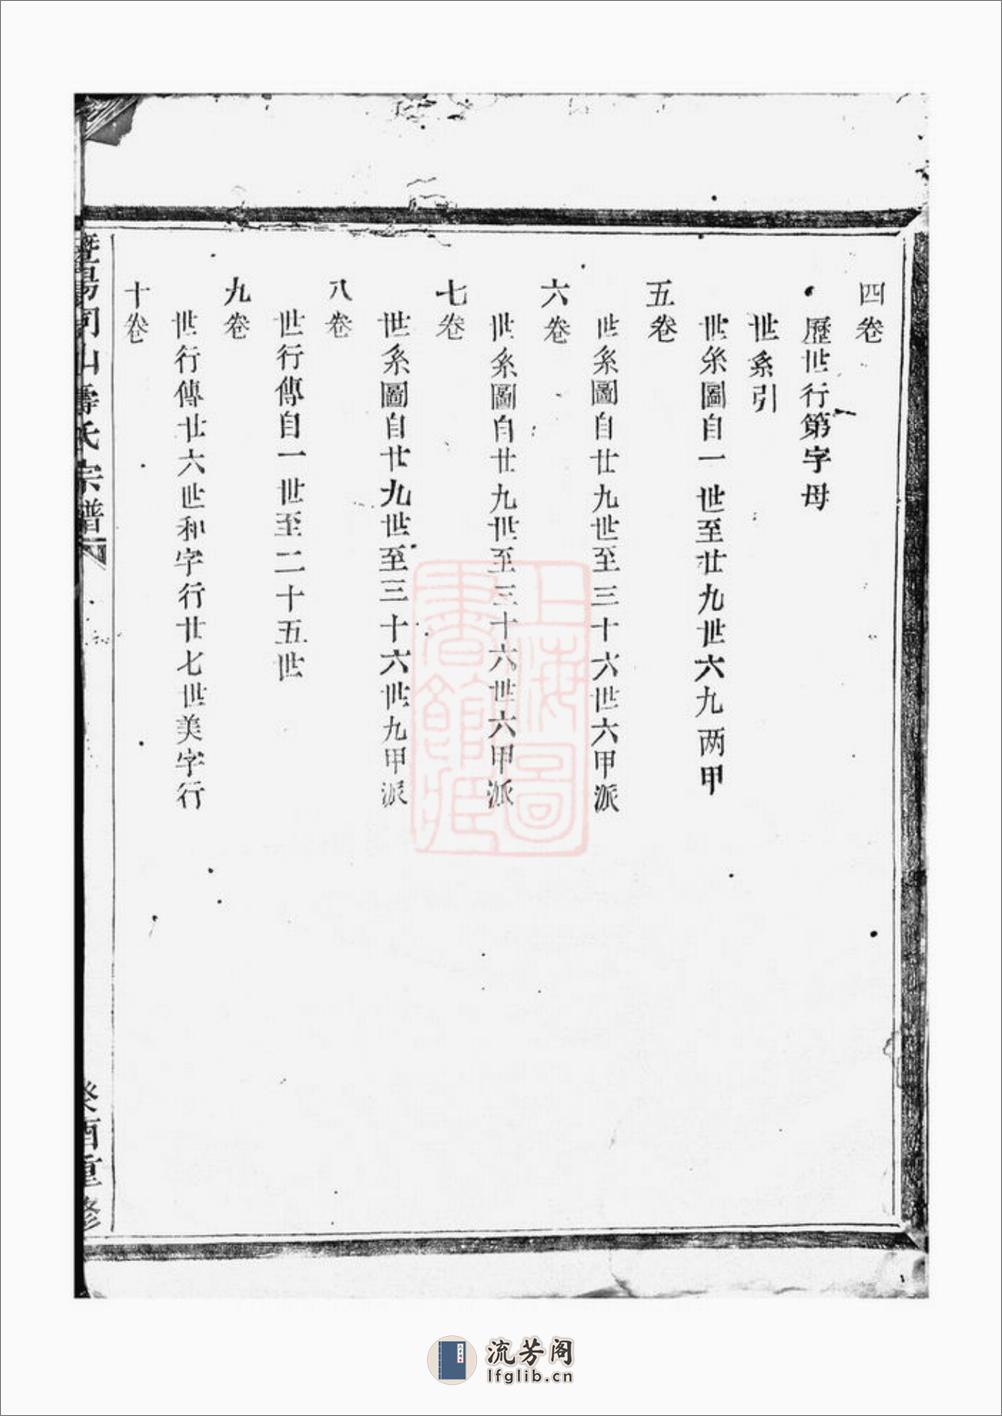 四卷
歷世行第字母
世系引
世系圖自一世至廿九世六九两甲
五卷
世系圖自廿九世至三十六世六甲派
六卷
世系圖自廿九世至三十六世六甲派
七卷
世系圖自廿九世至三十六世九甲派
八卷
世行傳自一世至二十五世
九卷
世行傳廿六世和字行廿七世美字行
十卷
暨陽同山壽氏宗譜
癸酉重修
上海圖書館藏
流芳阁
lfglib.cn